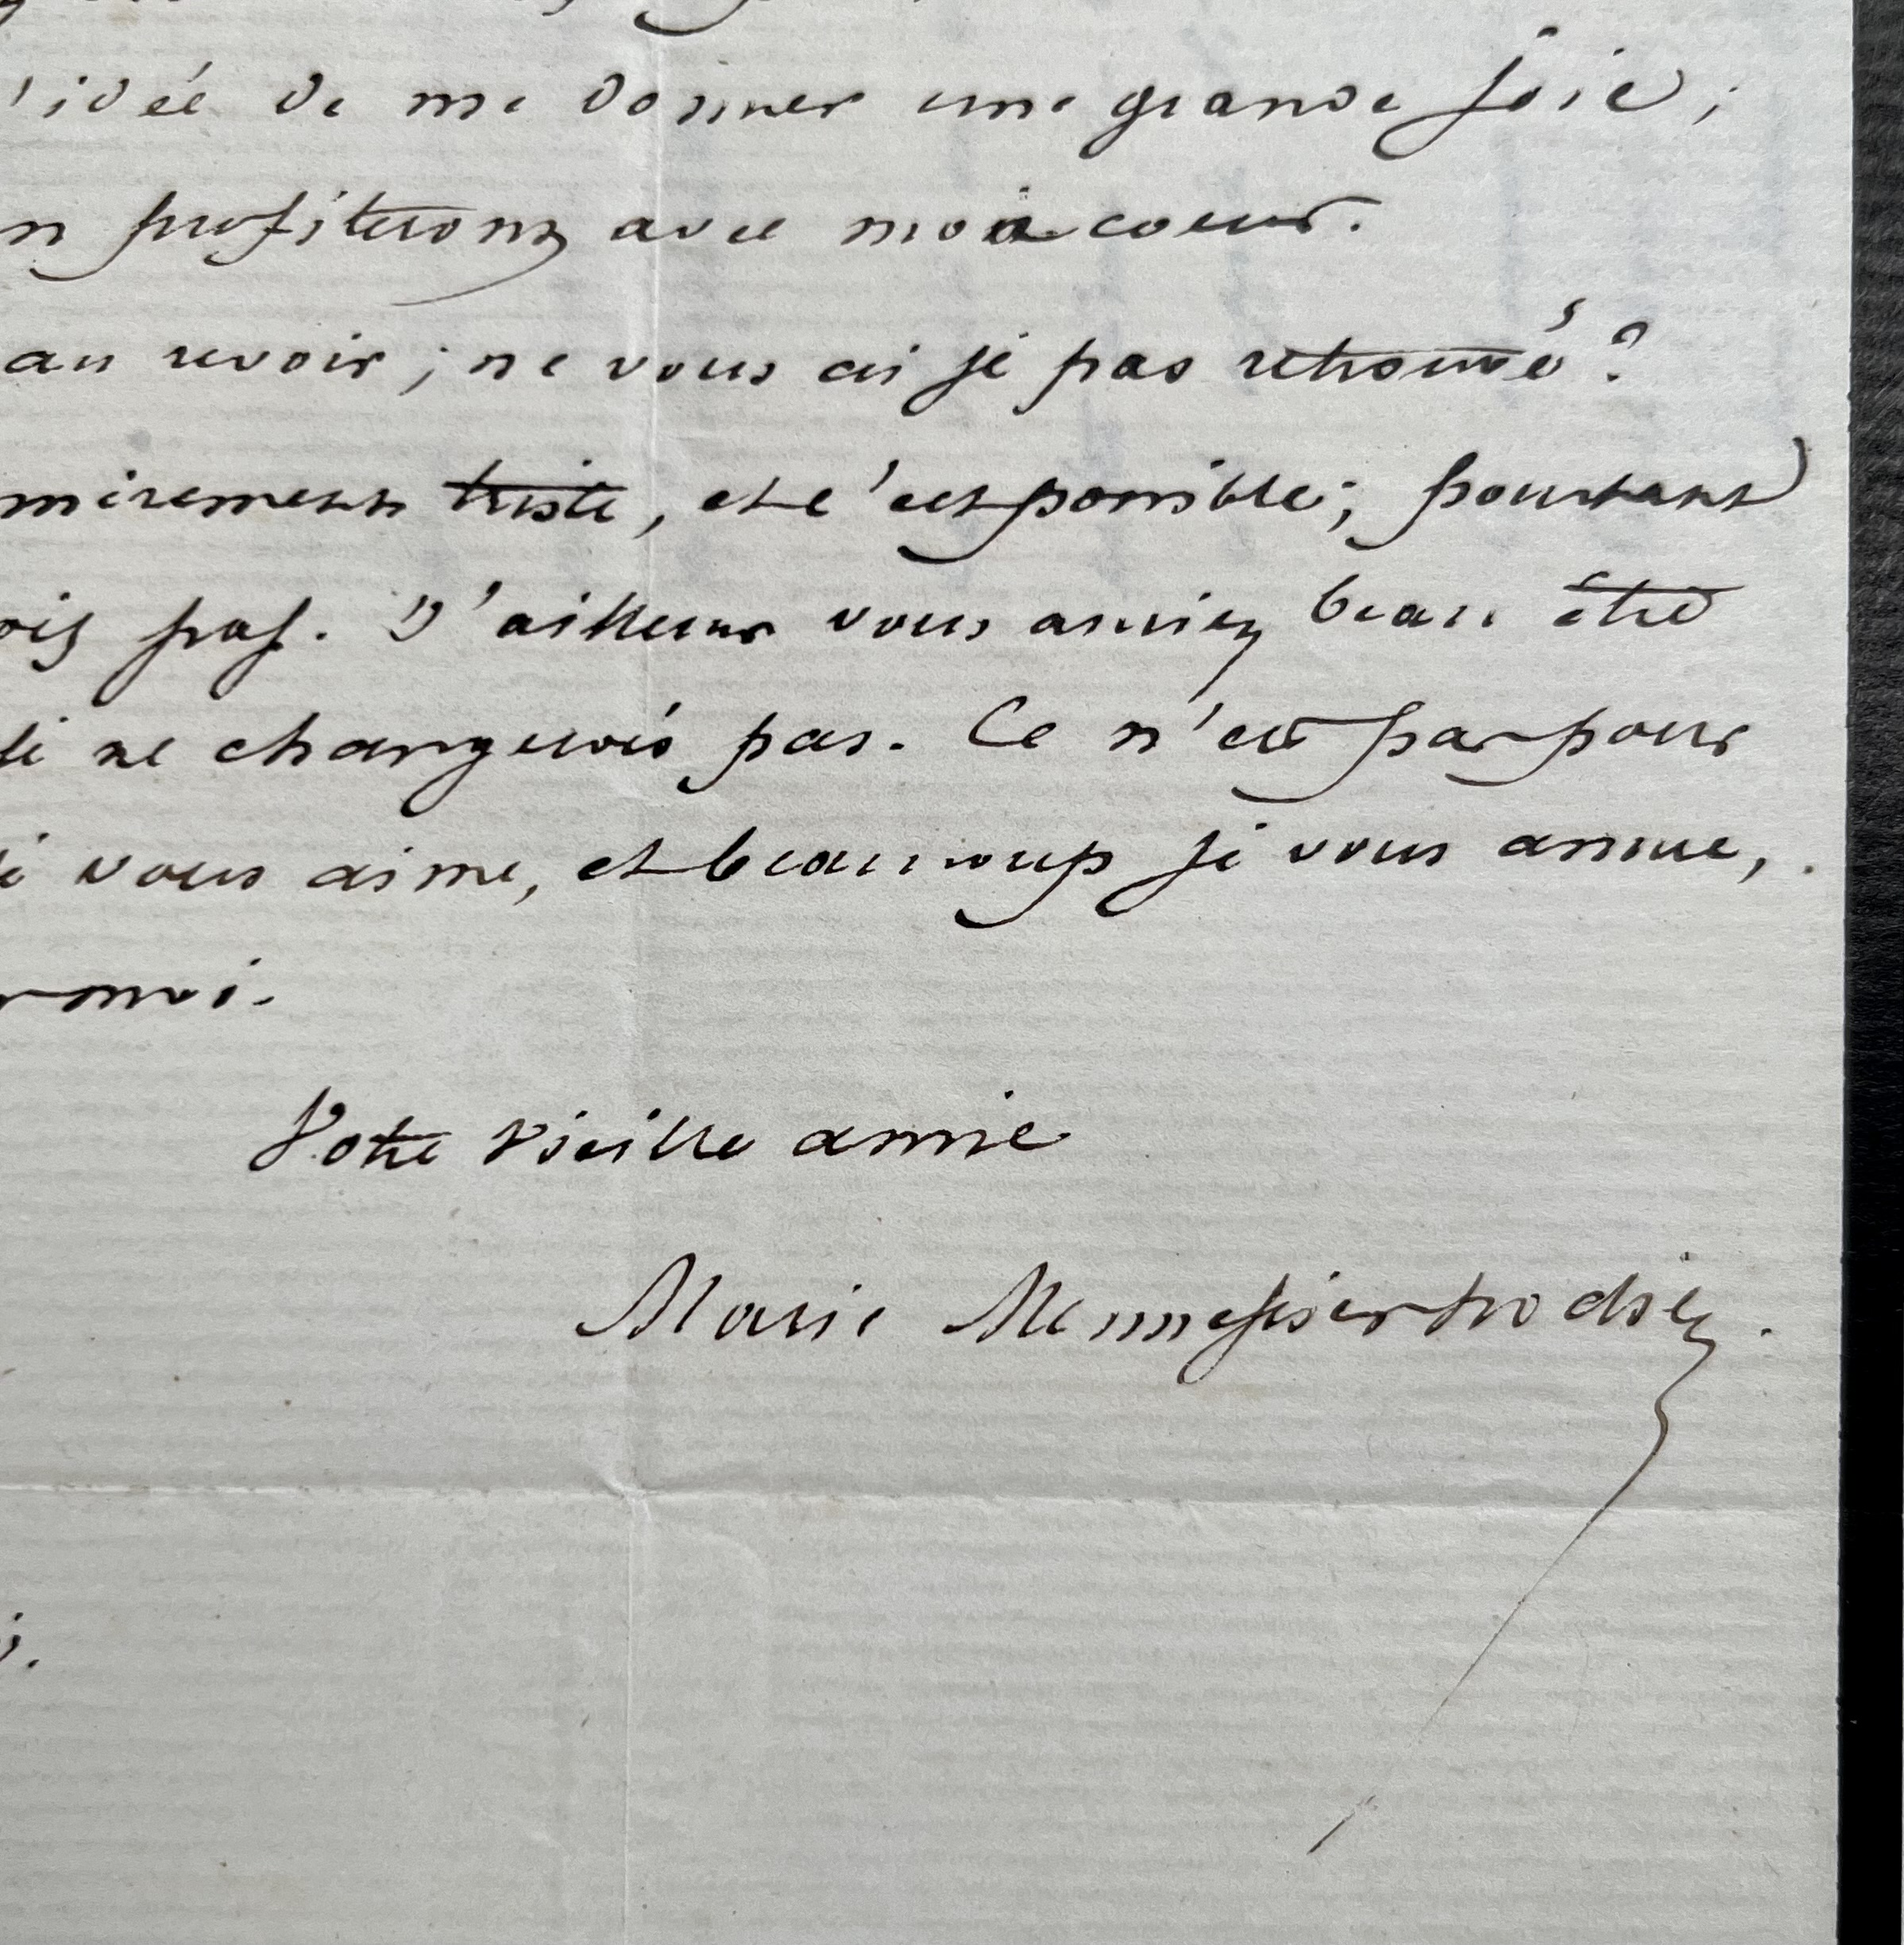 'idée de me donner une grande joie;
n profiterons avec mon coeur.
au revoir; ne vous ai je pas retrouvé?
mirement triste, et c'est possible; pourtant
ois pas. D'ailleurs vous auriez beau être
je ne changerois pas. Ce n'est pas pour
vous aime, et beaucoup je vous assure,
moi.
Votre vieille amie
Marie Mennessier Nodier.